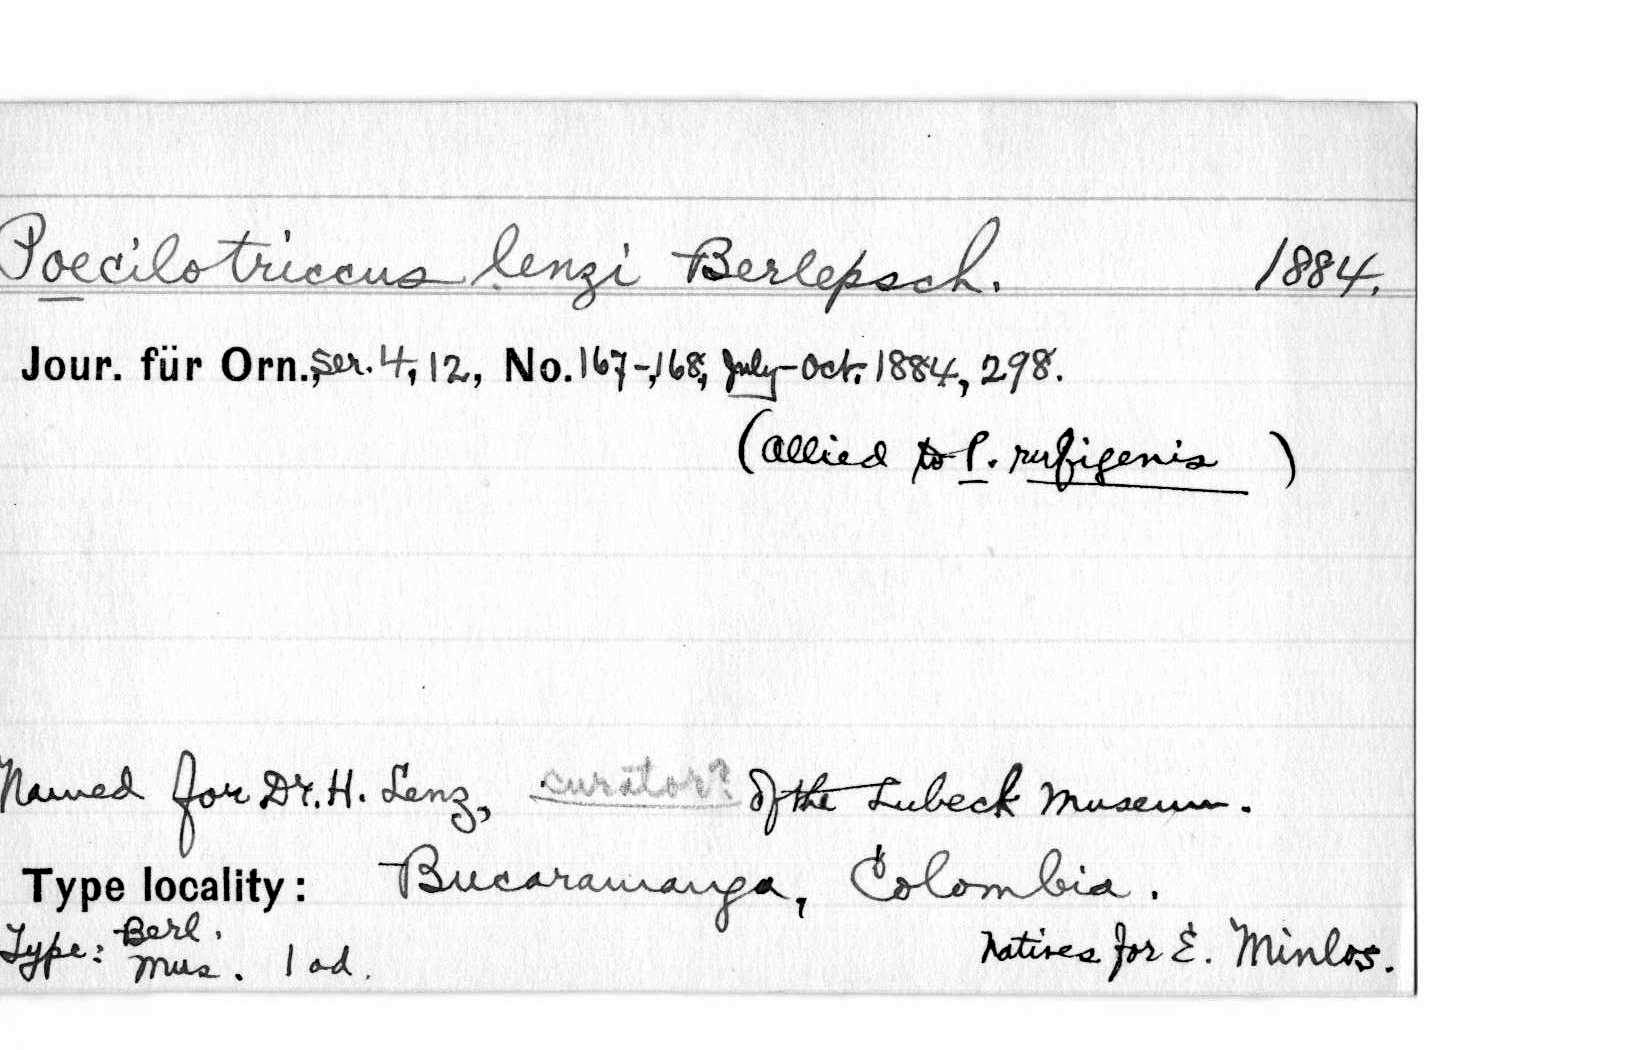 Poecilotriccus lenzi Berlepsch. 1884.
Jour. für Orn., ser. 4, 12, No. 167-168, July-Oct. 1884, 298.
(allied to P. rufigenis )
Named for Dr. H. Lenz, curator? of the Lubeck Museum.
Type locality: Bucaramanga, Colombia.
Type: Berl. Mus. 1 ad. Natives for E. Minlos.